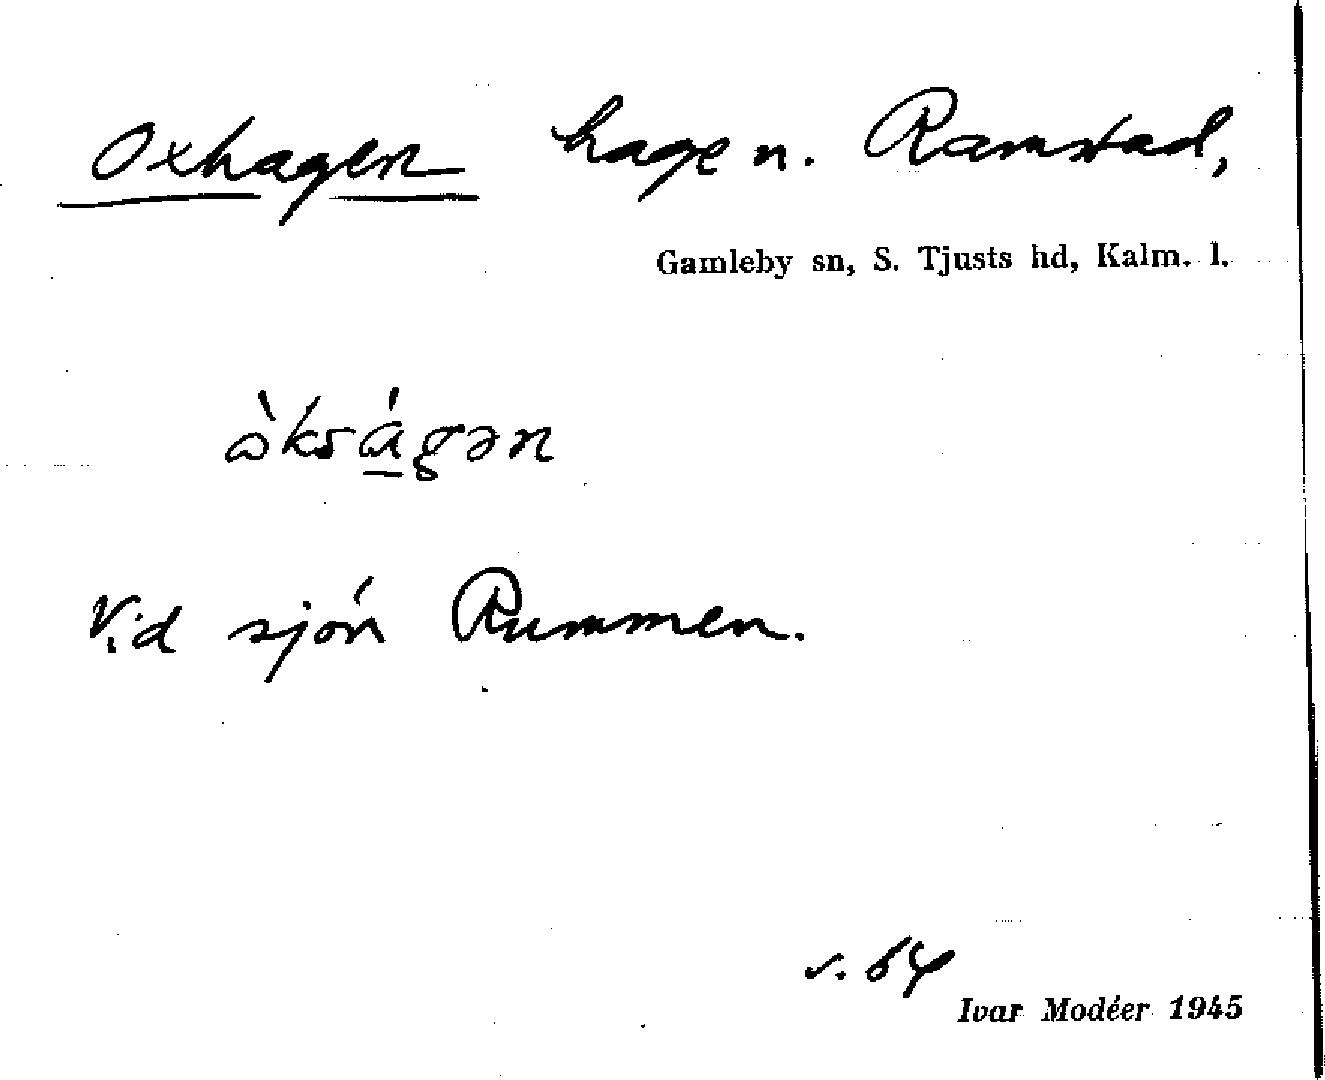 Oxhagen hage n. Ramstad,
Gamleby sn, S. Tjusts hd, Kalm. l.
òksá̱gən
Vid sjön Rummen.
s. 64
Ivar Modéer 1945